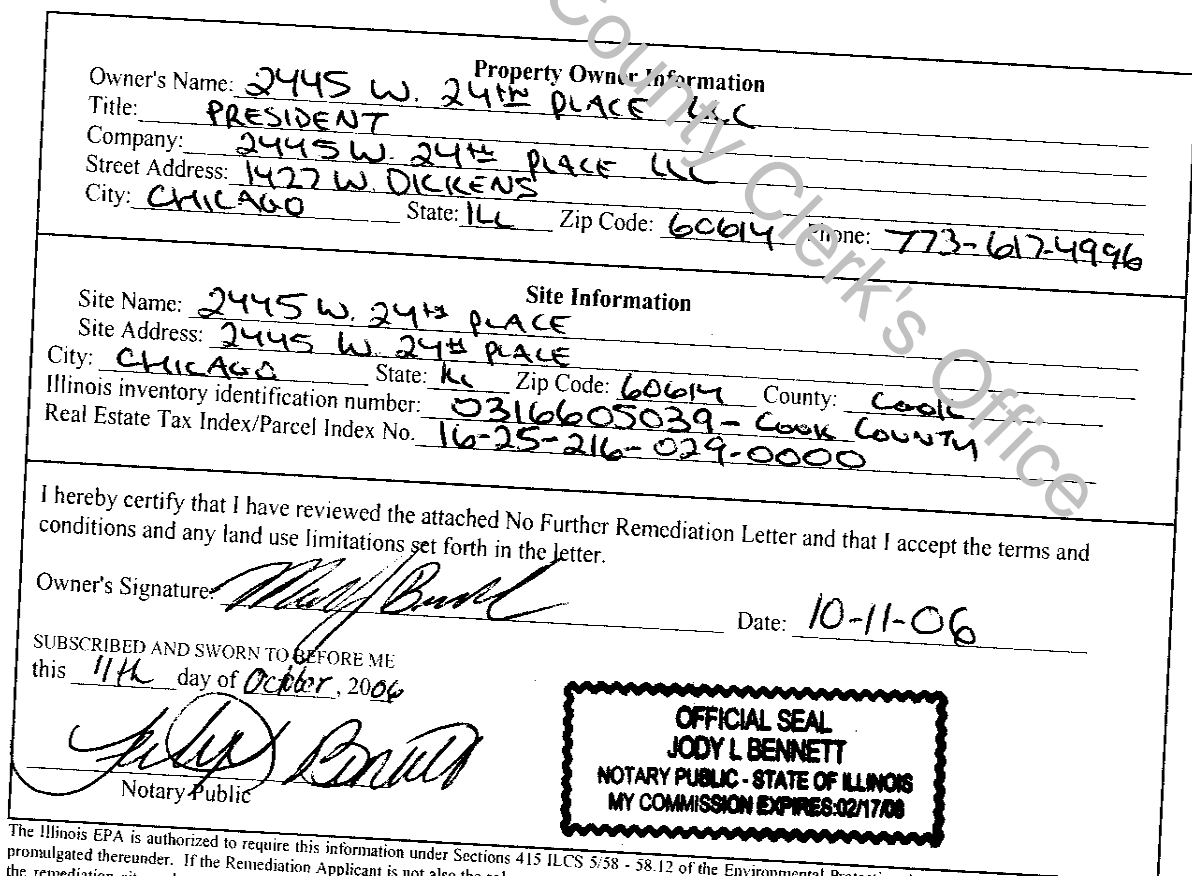 County Clerk's Office
Property Owner Information
Owner's Name: 2445 W. 24TH PLACE LLC
Title: PRESIDENT
Company: 2445 W. 24TH PLACE LLC
Street Address: 1427 W. DICKENS
City: CHICAGO State: ILL Zip Code: 60614 Phone: 773-617-4996
Site Information
Site Name: 2445 W. 24TH PLACE
Site Address: 2445 W. 24TH PLACE
City: CHICAGO State: ILL Zip Code: 60614 County: COOK
Illinois inventory identification number: 0316605039 - COOK COUNTY
Real Estate Tax Index/Parcel Index No. 16-25-216-029-0000
I hereby certify that I have reviewed the attached No Further Remediation Letter and that I accept the terms and
conditions and any land use limitations set forth in the letter.
Owner's Signature:
Date: 10-11-06
SUBSCRIBED AND SWORN TO BEFORE ME
this 11th day of October, 2006
Notary Public
OFFICIAL SEAL
JODY L BENNETT
NOTARY PUBLIC - STATE OF ILLINOIS
MY COMMISSION EXPIRES:02/17/08
The Illinois EPA is authorized to require this information under Sections 415 ILCS 5/58 - 58.12 of the Environmental
promulgated thereunder. If the Remediation Applicant is not also the
the remediation